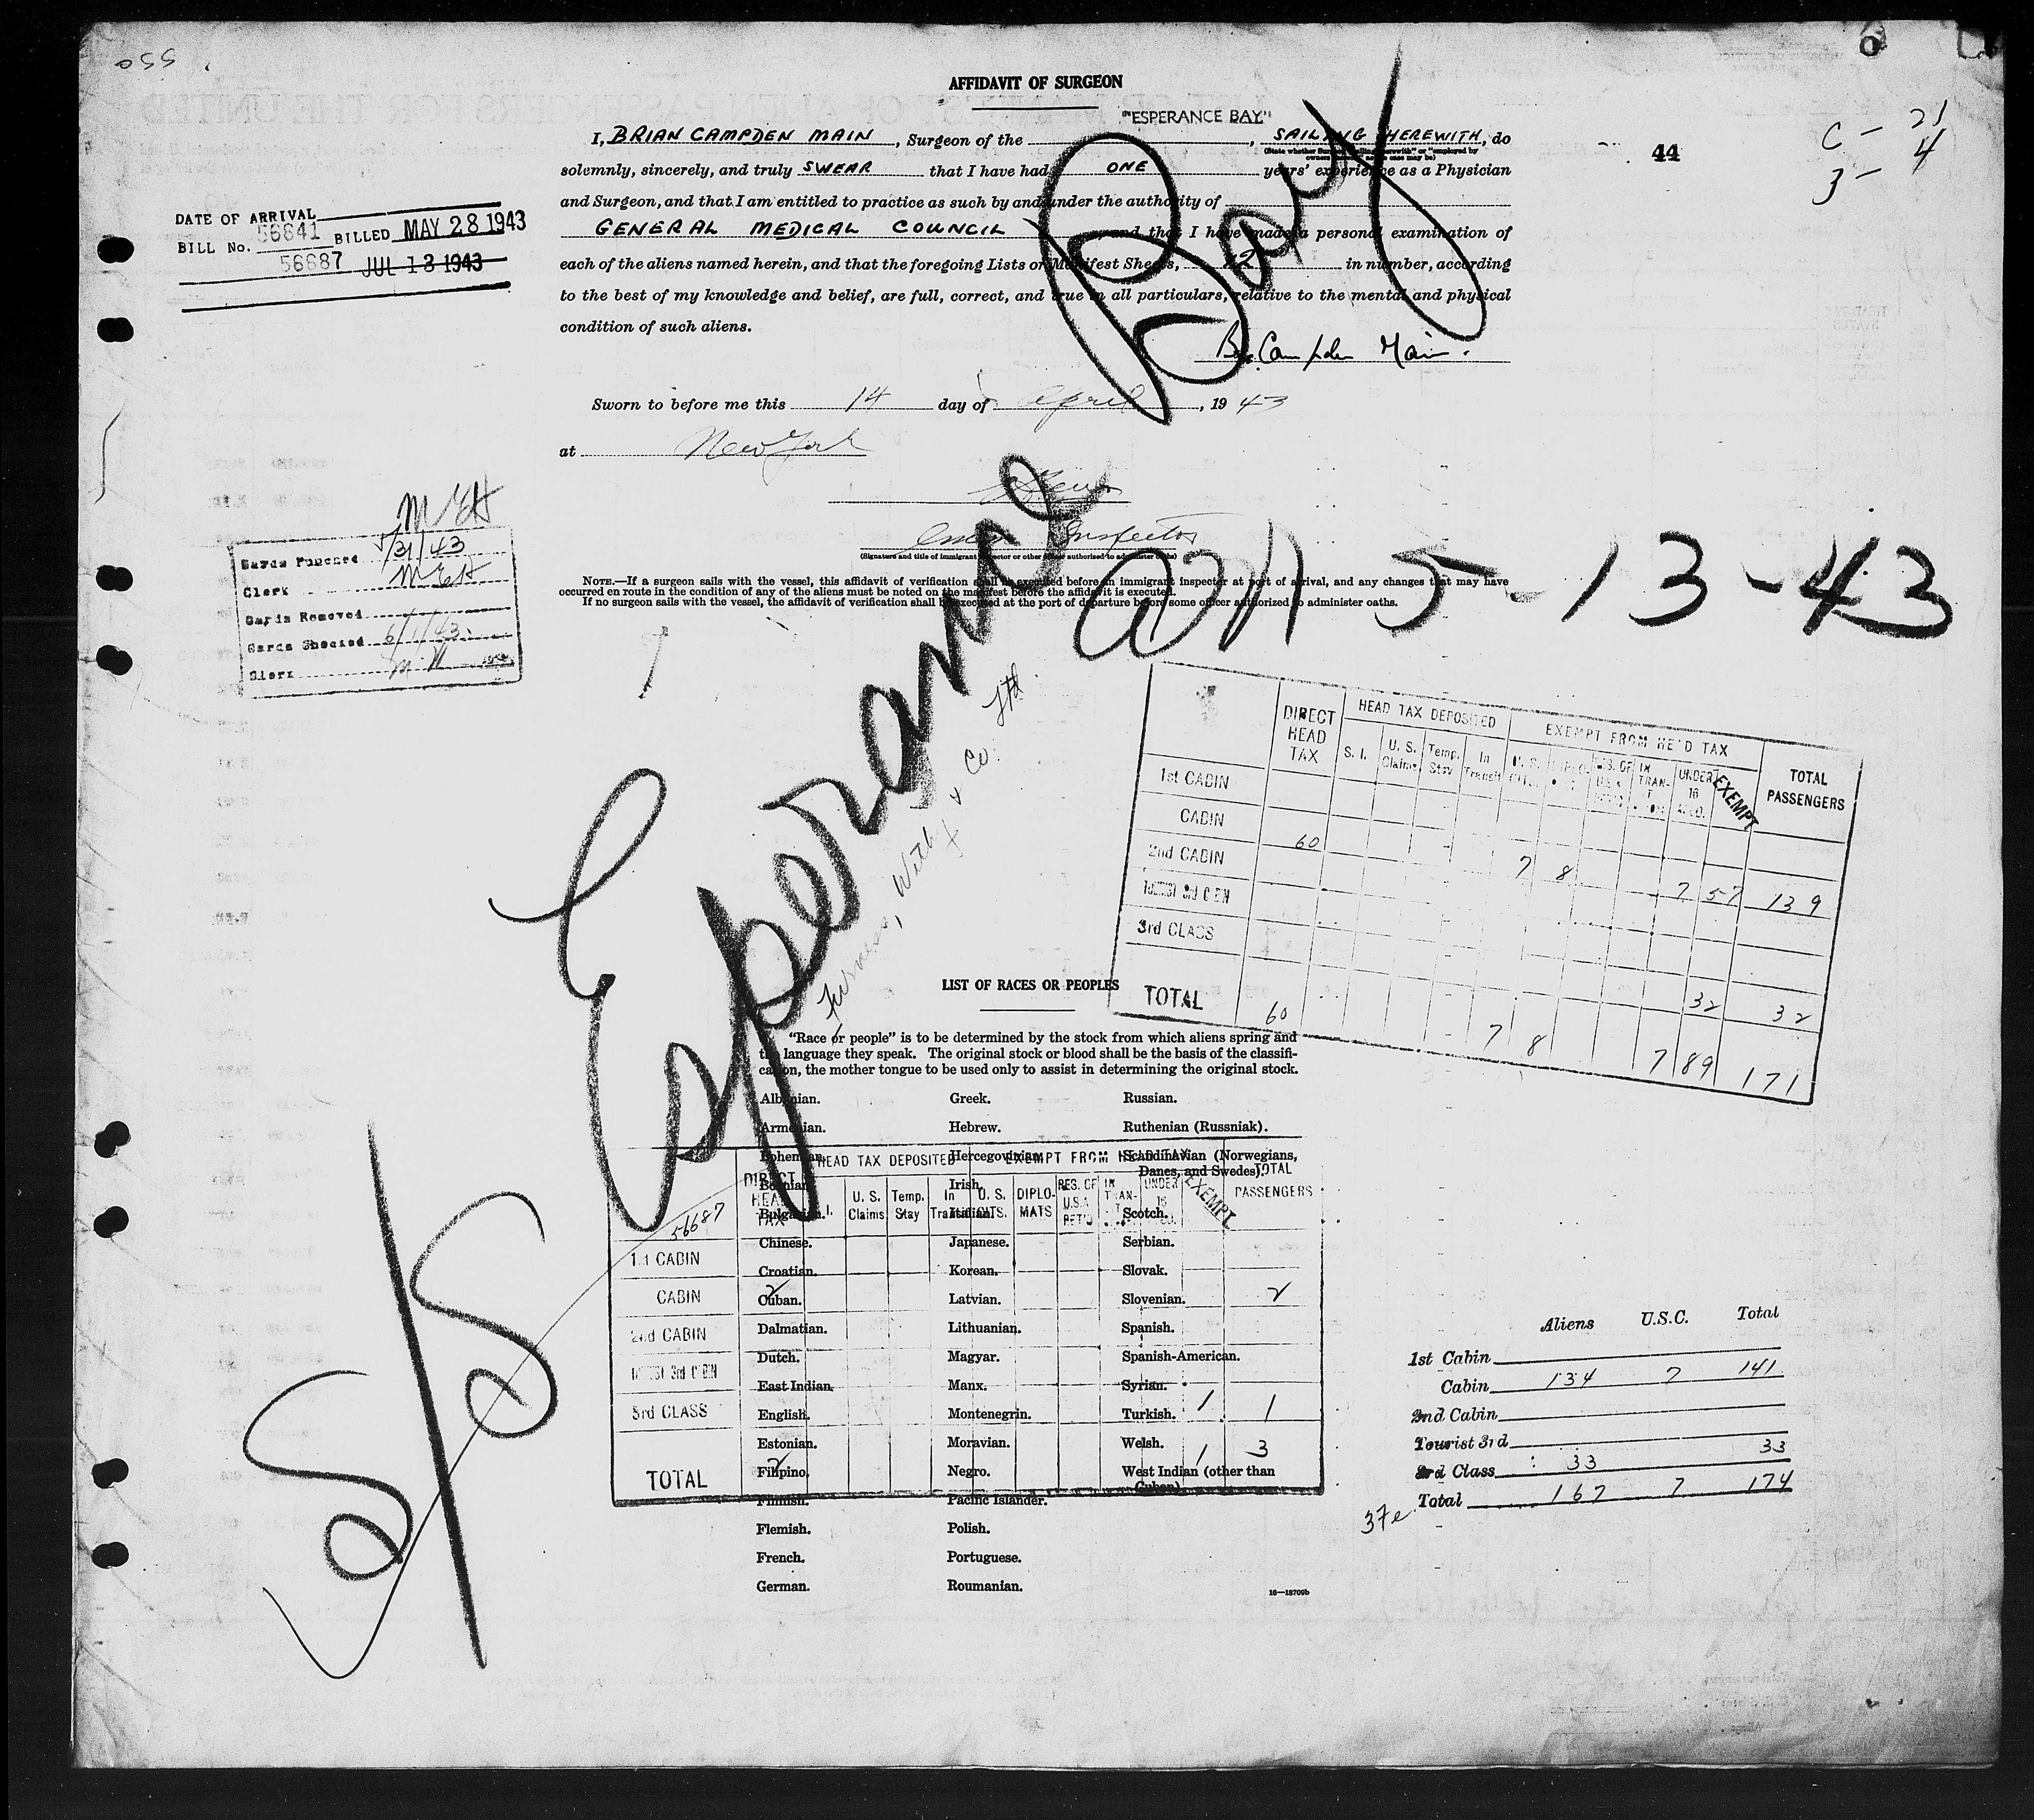 AFFIDAVIT OF SURGEON
"ESPERANCE BAY"
I, BRIAN CAMPDEN MAIN, Surgeon of the, SAILING THEREWITH, do
(State whether Surgeon "sailing therewith" or "employed by
owners" as the case may be)
solemnly, sincerely, and truly SWEAR that I have had ONE years' experience as a Physician
and Surgeon, and that I am entitled to practice as such by and under the authority of
GENERAL MEDICAL COUNCIL, and that I have made a personal examination of
each of the aliens named herein, and that the foregoing Lists or Manifest Sheets, 42 in number, according
to the best of my knowledge and belief, are full, correct, and true in all particulars, relative to the mental and physical
condition of such aliens.
B. Campden Main.
Sworn to before me this 14 day of April, 1943
at New York
Inspector
(Signature and title of immigrant inspector or other officer authorized to administer oaths)
NOTE.—If a surgeon sails with the vessel, this affidavit of verification shall be executed before an immigrant inspector at port of arrival, and any changes that may have
occurred en route in the condition of any of the aliens must be noted on the manifest before the affidavit is executed.
If no surgeon sails with the vessel, the affidavit of verification shall be executed at the port of departure before some officer authorized to administer oaths.
44
C - 21
3 - 4
DATE OF ARRIVAL
BILL No. 56641 BILLED MAY 28 1943
56687 JUL 13 1943
MEH
Cards Punched 5/31/43
Clerk MEH
Cards Removed
Cards Checked 6/1/43
Clerk
S/S Esperance Bay
5-13-43
Furness, Withy & Co. Ltd.
DIRECT HEAD TAX
HEAD TAX DEPOSITED
EXEMPT FROM HEAD TAX
TOTAL PASSENGERS
S. I. U. S. Claims Temp. Stay In Transit U. S. CITS. DIPLO- MATS RES. OF U.S.A. RET'D IN TRAN- SIT UNDER 16 EXEMPT
1st CABIN
CABIN 60 7 8 7 57 139
2nd CABIN
TOURIST 3rd CABIN
3rd CLASS 32 32
TOTAL 60 7 8 7 89 171
LIST OF RACES OR PEOPLES
"Race or people" is to be determined by the stock from which aliens spring and
the language they speak. The original stock or blood shall be the basis of the classifi-
cation, the mother tongue to be used only to assist in determining the original stock.
Albanian. Greek. Russian.
Armenian. Hebrew. Ruthenian (Russniak).
Bohemian. Hercegovinian. Scandinavian (Norwegians,
Danes, and Swedes).
Bosnian. Irish.
Bulgarian. Italian. Scotch.
Chinese. Japanese. Serbian.
Croatian. Korean. Slovak.
Cuban. Latvian. Slovenian.
Dalmatian. Lithuanian. Spanish.
Dutch. Magyar. Spanish-American.
East Indian. Manx. Syrian.
English. Montenegrin. Turkish.
Estonian. Moravian. Welsh.
Filipino. Negro. West Indian (other than
Cuban).
Finnish. Pacific Islander.
Flemish. Polish.
French. Portuguese.
German. Roumanian.
16—18709b
56687
DIRECT HEAD TAX
HEAD TAX DEPOSITED
EXEMPT FROM HEAD TAX
TOTAL PASSENGERS
S. I. U. S. Claims Temp. Stay In Transit U. S. CITS. DIPLO- MATS RES. OF U.S.A. RET'D IN TRAN- SIT UNDER 16 EXEMPT
1st CABIN
CABIN 2 2
2nd CABIN
TOURIST 3rd CABIN
3rd CLASS 1 1
TOTAL 2 1 3
Aliens U.S.C. Total
1st Cabin
Cabin 134 7 141
2nd Cabin
Tourist 3rd
3rd Class 33 33
Total 167 7 174